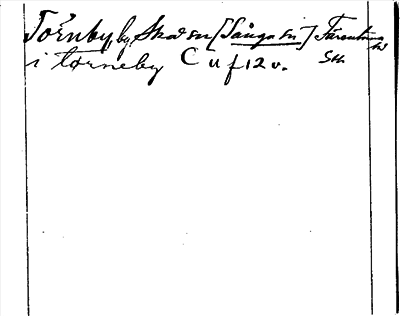 Törnby, by Skå sn [Sånga sn] Färentuna hd
i tørneby C u f 12 v. Sth.